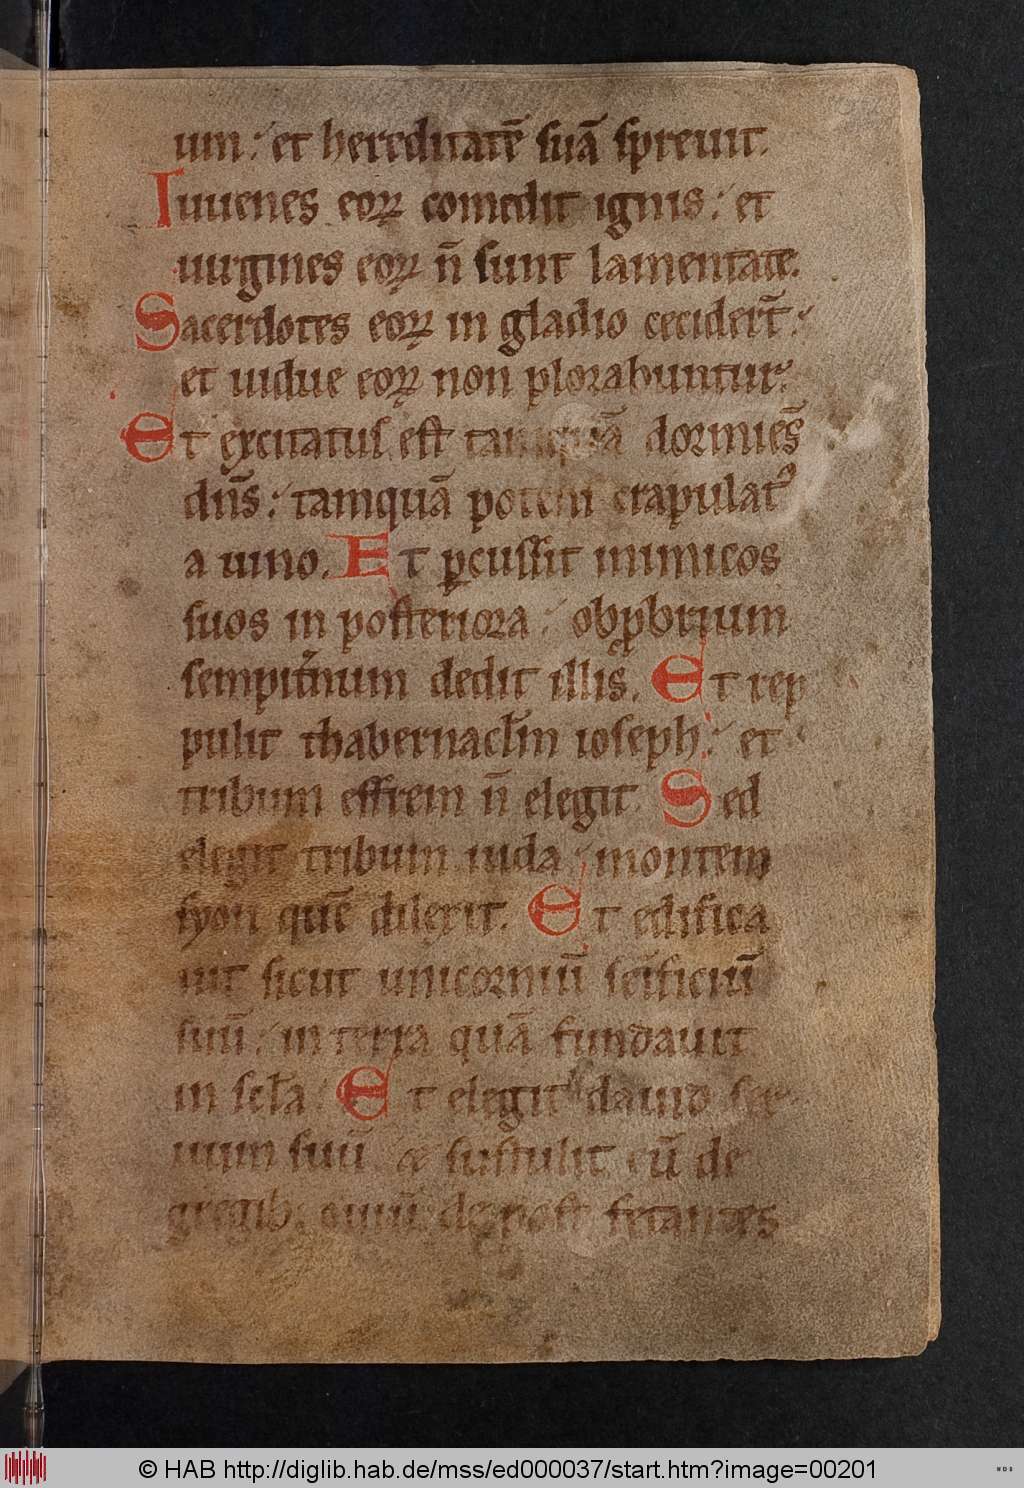 um : et hereditatē suā spreuit.
Iuuenes eoꝝ comedit ignis : et
uirgines eoꝝ n̄ sunt lamentate.
Sacerdotes eoꝝ in gladio cecider̄t :
et uidue eoꝝ non plorabuntur.
Et excitatus est tamquā dormiēs
dn̄s : tamquā potens crapulatꝰ
a uino. Et ꝑcussit inimicos
suos in posteriora : obꝓbrium
sempit̾num dedit illis. Et rep
pulit thabernacl̄m ioseph : et
tribum effrem n̄ elegit. Sed
elegit tribum iuda : montem
syon quē dilexit. Et edifica
uit sicut unicorniū sc̄ificiū
suū : in terra quā fundauit
in scl̄a. Et elegit dauid ser
uum suū : & sustulit eū de
gregib. ouiū de post fetantes
© HAB http://diglib.hab.de/mss/ed000037/start.htm?image=00201